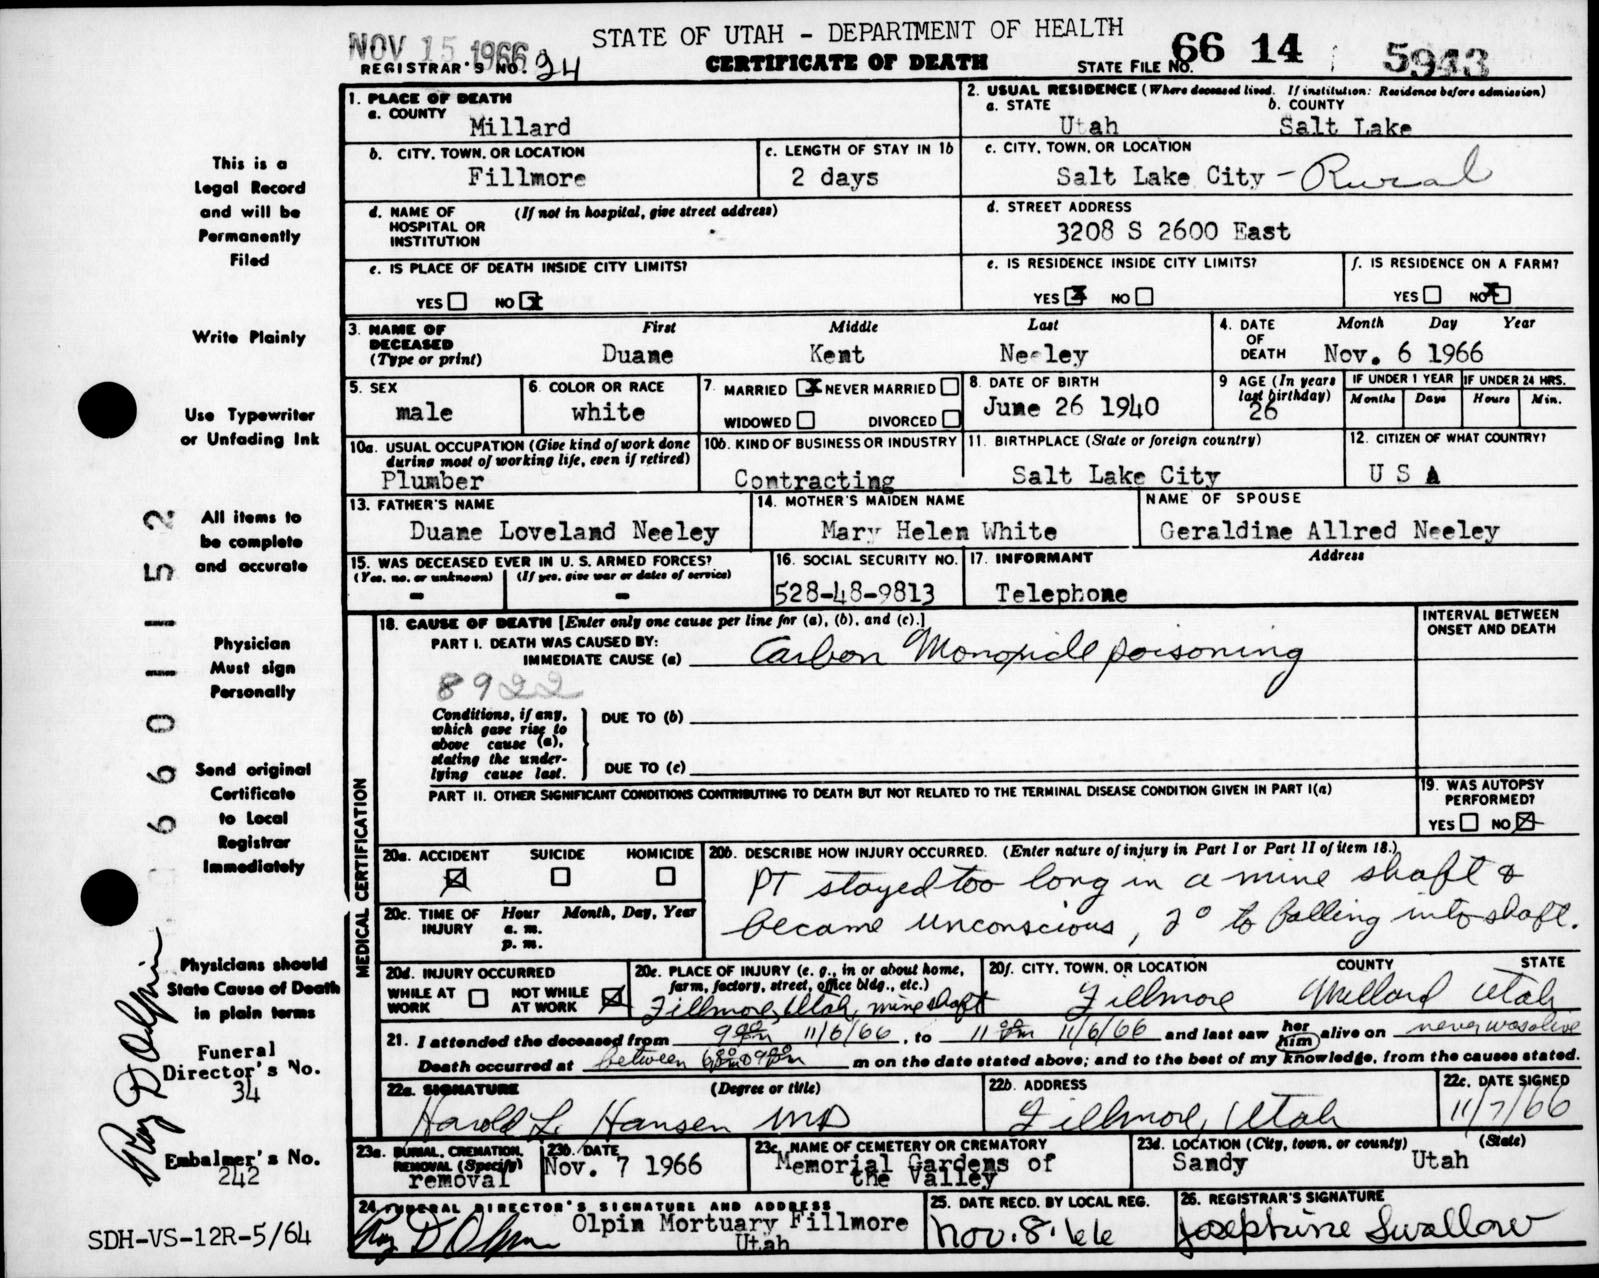 NOV 15 1966
STATE OF UTAH - DEPARTMENT OF HEALTH
REGISTRAR'S NO. 94
CERTIFICATE OF DEATH
STATE FILE NO. 66 14 5943
1. PLACE OF DEATH
a. COUNTY
Millard
2. USUAL RESIDENCE (Where deceased lived. If institution: Residence before admission)
a. STATE b. COUNTY
Utah Salt Lake
b. CITY, TOWN, OR LOCATION
Fillmore
c. LENGTH OF STAY IN 1b
2 days
c. CITY, TOWN, OR LOCATION
Salt Lake City - Rural
d. NAME OF (If not in hospital, give street address)
HOSPITAL OR
INSTITUTION
d. STREET ADDRESS
3208 S 2600 East
e. IS PLACE OF DEATH INSIDE CITY LIMITS?
YES NO X
e. IS RESIDENCE INSIDE CITY LIMITS?
YES X NO
f. IS RESIDENCE ON A FARM?
YES NO X
3. NAME OF
DECEASED
(Type or print)
First Middle Last
Duane Kent Neeley
4. DATE
OF
DEATH
Month Day Year
Nov. 6 1966
5. SEX
male
6. COLOR OR RACE
white
7. MARRIED X NEVER MARRIED
WIDOWED DIVORCED
8. DATE OF BIRTH
June 26 1940
9 AGE (In years
last birthday)
26
IF UNDER 1 YEAR
Months Days
IF UNDER 24 HRS.
Hours Min.
10a. USUAL OCCUPATION (Give kind of work done
during most of working life, even if retired)
Plumber
10b. KIND OF BUSINESS OR INDUSTRY
Contracting
11. BIRTHPLACE (State or foreign country)
Salt Lake City
12. CITIZEN OF WHAT COUNTRY?
U S A
13. FATHER'S NAME
Duane Loveland Neeley
14. MOTHER'S MAIDEN NAME
Mary Helen White
NAME OF SPOUSE
Geraldine Allred Neeley
15. WAS DECEASED EVER IN U. S. ARMED FORCES?
(Yes, no, or unknown) (If yes, give war or dates of service)
- -
16. SOCIAL SECURITY NO.
528-48-9813
17. INFORMANT Address
Telephone
MEDICAL CERTIFICATION
18. CAUSE OF DEATH [Enter only one cause per line for (a), (b), and (c).]
PART I. DEATH WAS CAUSED BY:
IMMEDIATE CAUSE (a) Carbon Monoxide poisoning
8922
Conditions, if any,
which gave rise to
above cause (a),
stating the under-
lying cause last.
DUE TO (b)
DUE TO (c)
INTERVAL BETWEEN
ONSET AND DEATH
PART II. OTHER SIGNIFICANT CONDITIONS CONTRIBUTING TO DEATH BUT NOT RELATED TO THE TERMINAL DISEASE CONDITION GIVEN IN PART I(a)
19. WAS AUTOPSY
PERFORMED?
YES NO X
20a. ACCIDENT SUICIDE HOMICIDE
X
20b. DESCRIBE HOW INJURY OCCURRED. (Enter nature of injury in Part I or Part II of item 18.)
PT stayed too long in a mine shaft &
became unconscious, 2° to falling into shaft.
20c. TIME OF Hour Month, Day, Year
INJURY a. m.
p. m.
20d. INJURY OCCURRED
WHILE AT NOT WHILE X
WORK AT WORK
20e. PLACE OF INJURY (e. g., in or about home,
farm, factory, street, office bldg., etc.)
Fillmore, Utah, mine shaft
20f. CITY, TOWN, OR LOCATION COUNTY STATE
Fillmore Millard Utah
21. I attended the deceased from 9 00 pm 11/6/66, to 11 00 pm 11/6/66 and last saw her him alive on never was alive
Death occurred at between 6 00 pm & 9 00 pm m on the date stated above; and to the best of my knowledge, from the causes stated.
22a. SIGNATURE (Degree or title)
Harold L. Hansen MD
22b. ADDRESS
Fillmore, Utah
22c. DATE SIGNED
11/7/66
23a. BURIAL, CREMATION,
REMOVAL (Specify)
removal
23b. DATE
Nov. 7 1966
23c. NAME OF CEMETERY OR CREMATORY
Memorial Gardens of
the Valley
23d. LOCATION (City, town, or county) (State)
Sandy Utah
24. FUNERAL DIRECTOR'S SIGNATURE AND ADDRESS
Roy D Olpin Olpin Mortuary Fillmore
Utah
25. DATE RECD. BY LOCAL REG.
Nov. 8. 66
26. REGISTRAR'S SIGNATURE
Josephine Swallow
This is a
Legal Record
and will be
Permanently
Filed
Write Plainly
Use Typewriter
or Unfading Ink
All items to
be complete
and accurate
Physician
Must sign
Personally
Send original
Certificate
to Local
Registrar
Immediately
Physicians should
State Cause of Death
in plain terms
Funeral
Director's No.
34
Embalmer's No.
242
66 01 152
Roy D Olpin
SDH-VS-12R-5/64